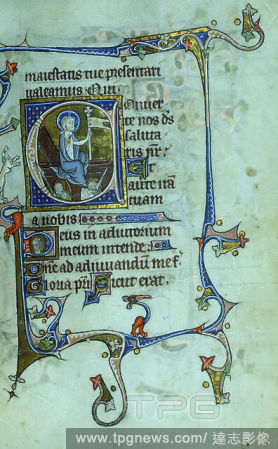 maiestatis tue presentari
ualeamus. Qui.
Conuer
te nos ds
saluta
ris nr: Et
auerte irā
tuam
a nobis
Deus in adiutorium
meum intende:
Dne ad adiuuandū me f.
Gloria pri Sicut erat.
TPG
www.tpgnews.com/ 達志影像